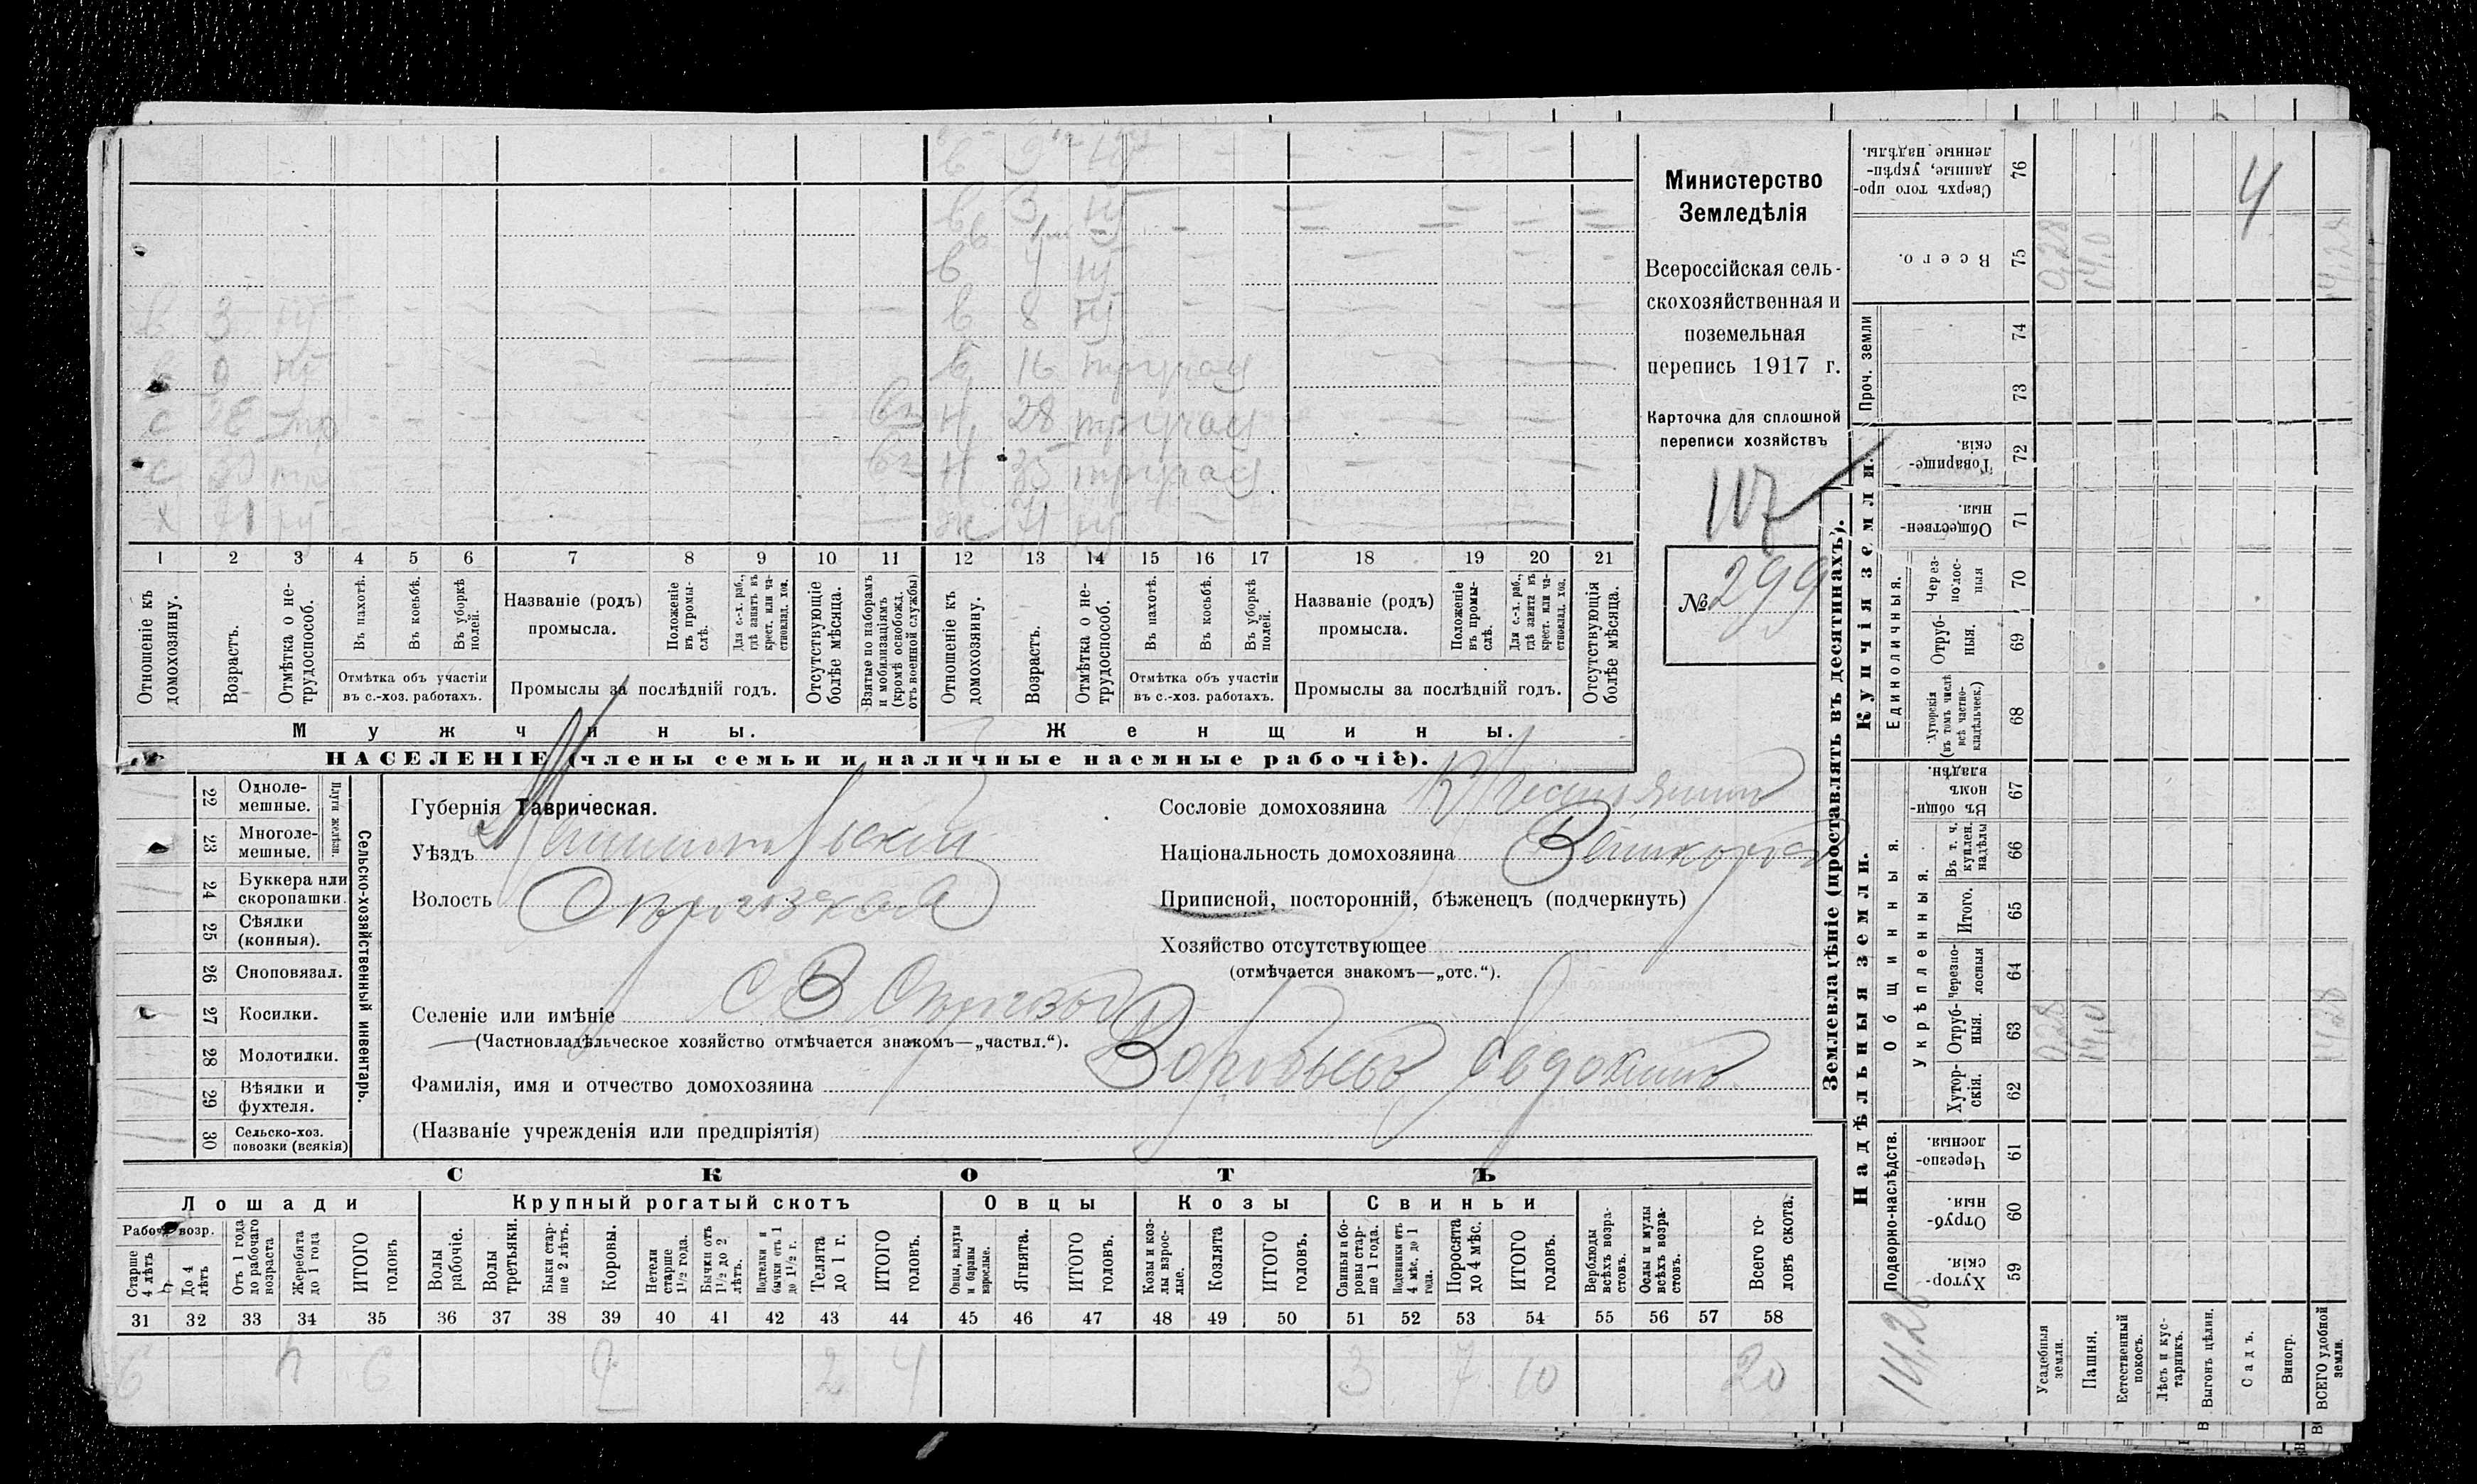 Министерство
Земледѣлія
Всероссійская сель-
скохозяйственная и
поземельная
перепись 1917 г.
Карточка для сплошной
переписи хозяйствъ
117
№ 299
3 нУ
х 71 нУ
в 3 нУ
в 4 нУ
в 8 нУ
в 16
н 28
н 35
ж 71 нУ
1 2 3 4 5 6 7 8 9 10 11 12 13 14 15 16 17 18 19 20 21
Отношеніе къ домохозяину.
Возрастъ.
Отмѣтка о не-трудоспособ.
Въ пахотѣ.
Въ косьбѣ.
Въ уборкѣ полей.
Отмѣтка объ участіи
въ с.-хоз. работахъ.
Названіе (родъ)
промысла.
Положеніе въ промы-слѣ.
Для с.-х. раб., гдѣ занятъ въ крест. или ча-стновлад. хоз.
Промыслы за послѣдній годъ.
Отсутствующіе болѣе мѣсяца.
Взятые по наборамъ и мобилизаціямъ (кромѣ освобожд. отъ военной службы)
Отношеніе къ домохозяину.
Возрастъ.
Отмѣтка о не-трудоспособ.
Въ пахотѣ.
Въ косьбѣ.
Въ уборкѣ полей.
Отмѣтка объ участіи
въ с.-хоз. работахъ.
Названіе (родъ)
промысла.
Положеніе въ промы-слѣ.
Для с.-х. раб., гдѣ занята въ крест. или ча-стновлад. хоз.
Промыслы за послѣдній годъ.
Отсутствующія болѣе мѣсяца.
Мужчины. Женщины.
НАСЕЛЕНІЕ (члены семьи и наличные наемные рабочіе).
22 Одноле-мешные.
23 Многоле-мешные.
Плуги желѣзн.
24 Буккера или скоропашки.
25 Сѣялки (конныя).
26 Сноповязал.
27 Косилки.
28 Молотилки.
29 Вѣялки и фухтеля.
30 Сельско-хоз. повозки (всякія)
Сельско-хозяйственный инвентарь.
Губернія Таврическая.
Уѣздъ
Волость
Селеніе или имѣніе
(Частновладѣльческое хозяйство отмѣчается знакомъ—„частвл.“).
Фамилія, имя и отчество домохозяина Воробьевъ Евдокимъ
(Названіе учрежденія или предпріятія)
Сословіе домохозяина Крестьянинъ
Національность домохозяина
Приписной, посторонній, бѣженецъ (подчеркнуть)
Хозяйство отсутствующее
(отмѣчается знакомъ—„отс.“).
СКОТЪ
Лошади Крупный рогатый скотъ Овцы Козы Свиньи
Рабоч. возр.
Старше 4 лѣтъ
До 4 лѣтъ
Отъ 1 года до рабочаго возраста
Жеребята до 1 года
ИТОГО головъ
Волы рабочіе.
Волы третьяки.
Быки стар-ше 2 лѣтъ.
Коровы.
Нетели старше 1½ года.
Бычки отъ 1½ до 2 лѣтъ.
Подтелки и бычки отъ 1 до 1½ г.
Телята до 1 г.
ИТОГО головъ.
Овцы, валухи и бараны взрослые.
Ягнята.
ИТОГО головъ.
Козы и коз-лы взрос-лые.
Козлята
ИТОГО головъ.
Свиньи и бо-ровы стар-ше 1 года.
Подсвинки отъ 4 мѣс. до 1 года.
Поросята до 4 мѣс.
ИТОГО головъ.
Верблюды всѣхъ возра-стовъ.
Ослы и мулы всѣхъ возра-стовъ.
Всего го-ловъ скота.
31 32 33 34 35 36 37 38 39 40 41 42 43 44 45 46 47 48 49 50 51 52 53 54 55 56 57 58
6 6 2 2 4 3 7 10 20
Землевладѣніе (проставлять въ десятинахъ).
Надѣльныя земли.
Купчія земли.
Проч. земли
Подворно-наслѣдств.
Общинныя.
Укрѣпленныя.
Единоличныя.
59 Хутор-скія.
60 Отруб-ныя.
61 Черезпо-лосныя.
62 Хутор-скія.
63 Отруб-ныя.
64 Черезпо-лосныя
65 Итого.
66 Въ т. ч. куплен. надѣлы
67 Въ общи-номъ владѣн.
68 Хуторскія (въ томъ числѣ всѣ частно-владѣльческ.)
69 Отруб-ныя.
70 Через-полос-ныя
71 Обществен-ныя.
72 Товарище-скія.
73
74
75 Всего.
76 Сверхъ того про-данные, укрѣп-ленные надѣлы.
Усадебныя земли.
Пашня.
Естественный покосъ.
Лѣсъ и кус-тарникъ.
Выгонъ цѣлин.
Садъ.
Виногр.
ВСЕГО удобной земли.
0,28
14,0
14,28
0,28
14,0
14,28
4